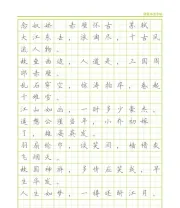 念奴娇 赤壁怀古 苏轼
大江东去，浪淘尽，千古风
流人物。
故垒西边，人道是，三国周
郎赤壁。
乱石穿空，惊涛拍岸，卷起
千堆雪。
江山如画，一时多少豪杰。
遥想公瑾当年，小乔初嫁
了，雄姿英发。
羽扇纶巾，谈笑间，樯橹灰
飞烟灭。
故国神游，多情应笑我，早
生华发。
人生如梦，一樽还酹江月。